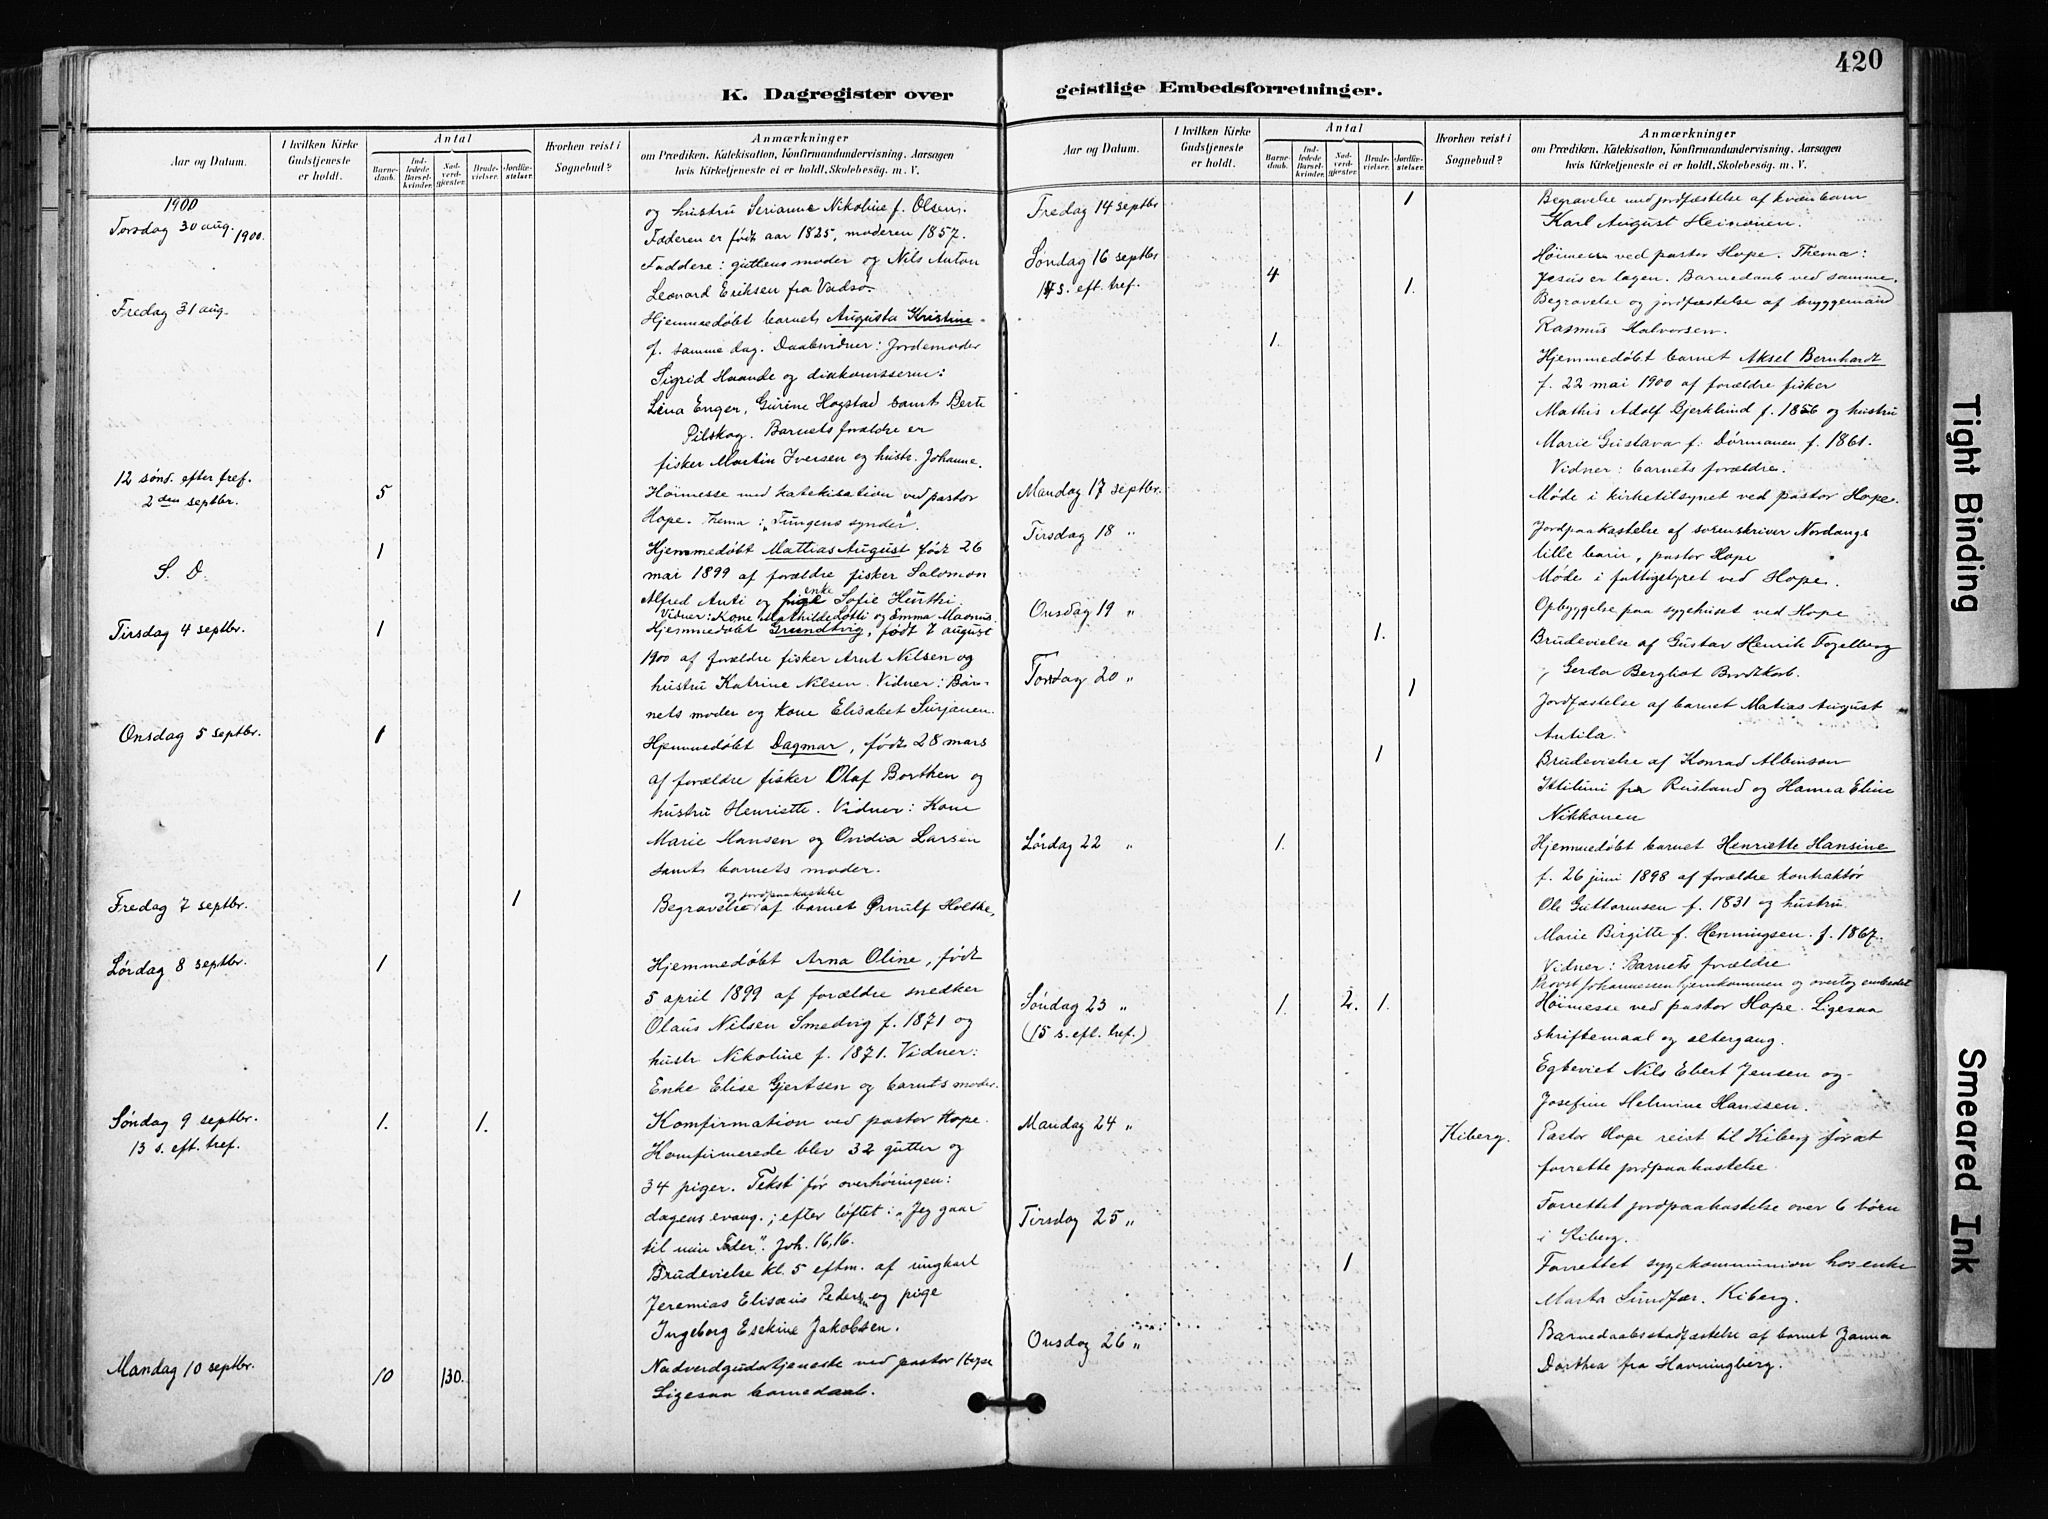 420
K. Dagregister over
geistlige Embedsforretninger.
Aar og Datum.
I hvilken Kirke Gudstjeneste er holdt.
Antal
Barne-daab.
Ind-ledede Barsel-kvinder.
Nad-verd-gjester.
Brude-vielser.
Jordfæ-stelser.
Hvorhen reist i Sognebud?
Anmærkninger
om Prædiken, Katekisation, Konfirmandundervisning. Aarsagen
hvis Kirketjeneste ei er holdt. Skolebesøg. m. V.
1900
Torsdag 30 aug. 1900.
og hustru Serianne Nikoline f. Olsen.
Faderen er født aar 1825, moderen 1857.
Faddere: guttens moder og Nils Anton
Leonard Eriksen fra Vadsø.
Fredag 31 aug.
Hjemmedøbt barnet Augusta Kristine
f. samme dag. Daabsvidner: Jordemoder
Sigrid Haande og diakonisserne:
Lina Enger, Gurine Hogstad samt Berte
Pilskog. Barnets forældre er
fisker Martin Iversen og hustr. Johanne.
12 sønd. efter tref.
2den septbr.
5
Høimesse med katekisation ved pastor
Hope. Tema: "Tungens synder".
S. D.
1
Hjemmedøbt Mattias August født 26
mai 1899 af forældre fisker Salomon
Alfred Anti og enke Sofie Hurtti.
Vidner: Kone Mathilde Lotti og Emma Magnus.
Tirsdag 4 septbr.
1
Hjemmedøbt Grundtvig, født 7 august
1900 af forældre fisker Arnt Nilsen og
hustru Katrine Nilsen. Vidner: Bar-
nets moder og Kone Elisabet Surjanen.
Onsdag 5 septbr.
1
Hjemmedøbt Dagmar, født 28 mars
af forældre fisker Olaf Borthen og
hustru Henriette. Vidner: Kone
Marie Hansen og Ovidia Larsen
samt barnets moder.
Fredag 7 septbr.
1
og jordpaakastelse
Begravelse af barnet Ørnulf Holthe,
Lørdag 8 septbr.
1
Hjemmedøbt Arna Oline, født
5 april 1899 af forældre snedker
Olaus Nilsen Smedvig f. 1871 og
hustr. Nikoline f. 1871. Vidner:
Enke Elise Gjertsen og barnets moder.
Søndag 9 septbr.
13 s. eft. tref.
1.
1.
Komfirmation ved pastor Hope.
Komfirmerede blev 32 gutter og
34 piger. Tekst før overhøringen:
dagens evang.; efter løftet: "Jeg gaar
til min Fader". Joh. 16,16.
Brudevielse kl. 5 eftm. af ungkarl
Jeremias Elisæus Pedersen og pige
Ingeborg Esekine Jakobsen.
Mandag 10 septbr.
10
130.
Nadverdgudstjeneste ved pastor Hope
Ligesaa barnedaab.
Aar og Datum.
I hvilken Kirke Gudstjeneste er holdt.
Antal
Barne-daab.
Ind-ledede Barsel-kvinder.
Nad-verd-gjester.
Brude-vielser.
Jordfæ-stelser.
Hvorhen reist i Sognebud?
Anmærkninger
om Prædiken, Katekisation, Konfirmandundervisning. Aarsagen
hvis Kirketjeneste ei er holdt. Skolebesøg. m. V.
Fredag 14 septbr.
1
Begravelse med jordfæstelse af kvænbarn
Karl August Heinonen.
Søndag 16 septbr
14 s. eft. tref.
4
Høimesse ved pastor Hope. Thema:
Jesus er lægen. Barnedaab ved samme.
1.
Begravelse og jordfæstelse af bryggemand
Rasmus Halvorsen.
1.
Hjemmedøbt barnet Aksel Bernhardt
f. 22 mai 1900 af forældre fisker
Mathis Adolf Bjerklund f. 1856 og hustru
Marie Gustava f. Dørmanen f. 1861.
Vidner: barnets forældre.
Mandag 17 septbr.
Møde i kirketilsynet ved pastor Hope.
Tirsdag 18 "
Jordpaakastelse af sorenskriver Nordangs
lille barn, pastor Hope
Møde i fattigstyret ved Hope.
Onsdag 19 "
Opbyggelse paa sygehuset ved Hope
1.
Brudevielse af Gustav Henrik Fogelberg
Gerda Bergliot Brodtkorb.
Torsdag 20 "
1
Jordfæstelse af barnet Matias August
Antila.
1
Brudevielse af Konrad Albinson
fra Rusland og Hanna Eline
Nikkonen
Lørdag 22 "
1.
Hjemmedøbt barnet Henriette Hansine
f. 26 juni 1898 af forældre kontraktør
Ole Guttormsen f. 1831 og hustru
Marie Birgitte f. Henningsen. f. 1867.
Vidner: Barnets forældre
Provst Johannessen hjemkommen og overtog embedet
Søndag 23 "
(15 s. eft. tref.)
1.
2.
1.
Høimesse ved pastor Hope. Ligesaa
skriftemaal og altergang.
Egteviet Nils Ebert Jensen og
Josefine Helmine Hanssen.
Mandag 24 "
Kiberg.
Pastor Hope reist til Kiberg for at
forrette jordpaakastelse
Tirsdag 25 "
Forrettet jordpaakastelse over 6 børn
i Kiberg.
1
Forrettet sygekommunion hos enke
Marta Sundfær. Kiberg.
Onsdag 26 "
Barnedaabsstadfæstelse af barnet Janna
Dorthea fra Havningberg.
Tight Binding
Smeared Ink